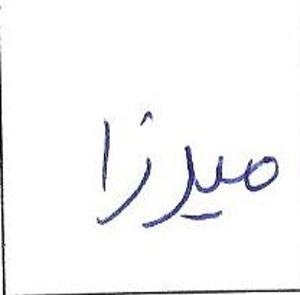 میرزا